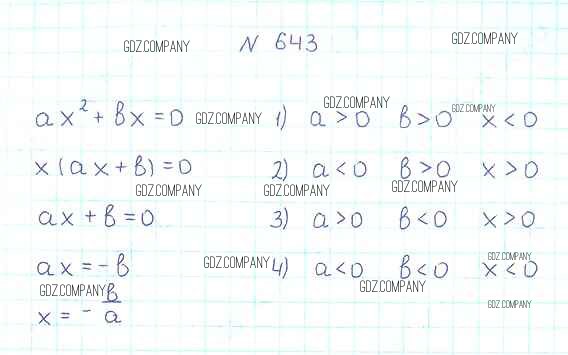 N 643
GDZ.COMPANY GDZ.COMPANY
ax² + bx = 0 GDZ.COMPANY 1) a > 0 b > 0 x < 0
GDZ.COMPANY GDZ.COMPANY
x (ax + b) = 0 2) a < 0 b > 0 x > 0
GDZ.COMPANY GDZ.COMPANY GDZ.COMPANY
ax + b = 0 3) a > 0 b < 0 x > 0
ax = - b GDZ.COMPANY 4) a < 0 b < 0 x < 0
GDZ.COMPANY
GDZ.COMPANY GDZ.COMPANY
x = - b/a GDZ.COMPANY